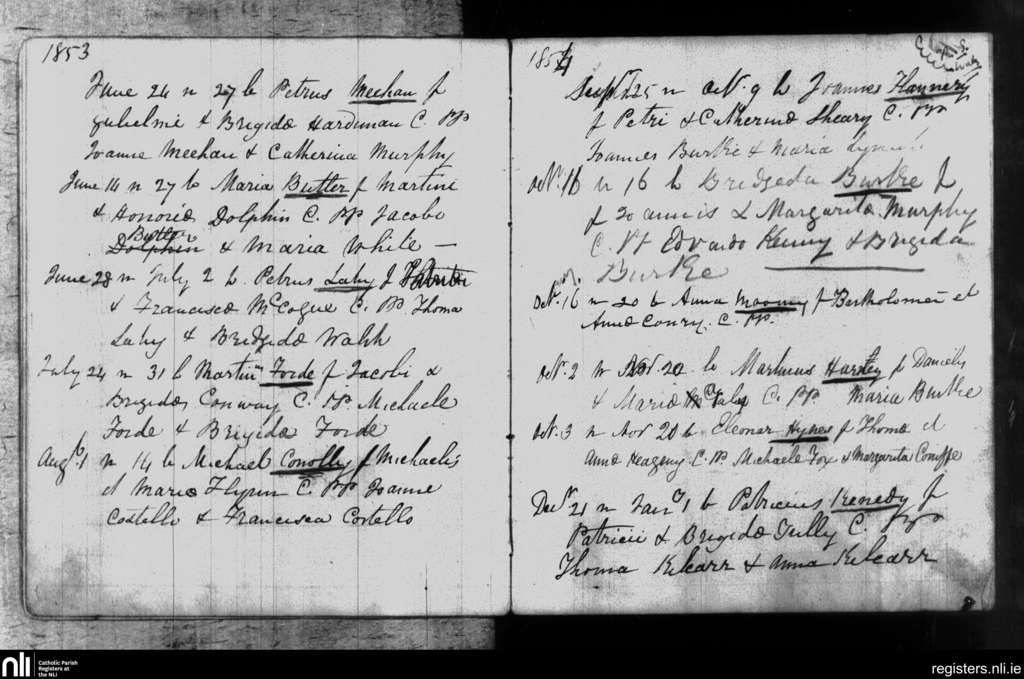 1853
June 24 n 27 b Petrus Meehan f
Gulielmi & Brigidæ Hardiman C. PP
Joanne Meehan & Catherina Murphy
June 14 n 27 b Maria Butler f Martini
& Honoriæ Dolphin C. PP Jacobo
Butler
Dolphin & Maria White —
June 28 n July 2 b. Petrus Lahy f
& Franciscæ McCogue C. PP. Thoma
Lahy & Bridgidæ Walsh
July 24 n 31 b Martin Forde f Jacobi &
Brigidæ Conway C. PP. Michaele
Forde & Brigida Forde
Augst 1 n 14 b Michael Conolly f Michaelis
et Mariæ Flynn C. PP Joanne
Costello & Francisca Costello
1854
Sept 25 n Oct. 9 b Joannes Flannery
f Petri & Catherinæ Sheary C. PP
Joannes Burke & Maria
Oct. 16 n 16 b Bridgeda Burke f
f Joannis & Margarita Murphy
C. PP Edvardo Kenny & Brigida
Burke
Oct. 16 n 20 b Anna Mooney f Bartholomei et
Annæ Conry. C. PP.
Oct. 2 n Nov 20 b Martinus Hartley f Danielis
& Mariæ C. PP Maria Burke
Oct. 3 n Nov 20 b Eleoner Hynes f Thomæ et
Annæ Heageny C. PP. Michaele Fox & Margarita Coniffe
Decr 21 n Jany 1 b Patricius Kenedy f
Patricii & Brigidæ Tully C. PP
Thoma Kilcarr & Anna Kilcarr
nli
Catholic Parish
Registers at
the NLI
registers.nli.ie